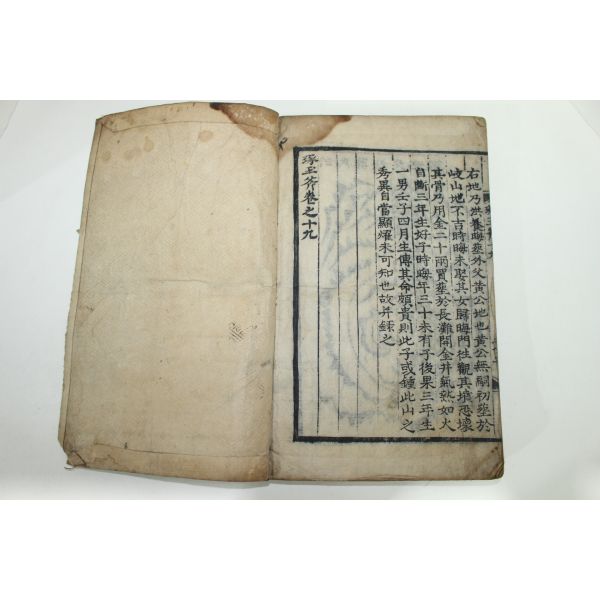 右地乃洪養晦葬外父黄公地也黄公無嗣初葬於
岐山地不吉時晦未娶其女歸晦門徃觀其墳悉壞
真骨乃用金二十兩買葬於長灘開金井氣熱如火
自斷三年生好子時晦年三十未有子後果三年生
一男壬子四月生傳其命頗貴則此子或鍾此山之
秀異日當顯耀未可知也故并錄之
琢玉斧卷之十九